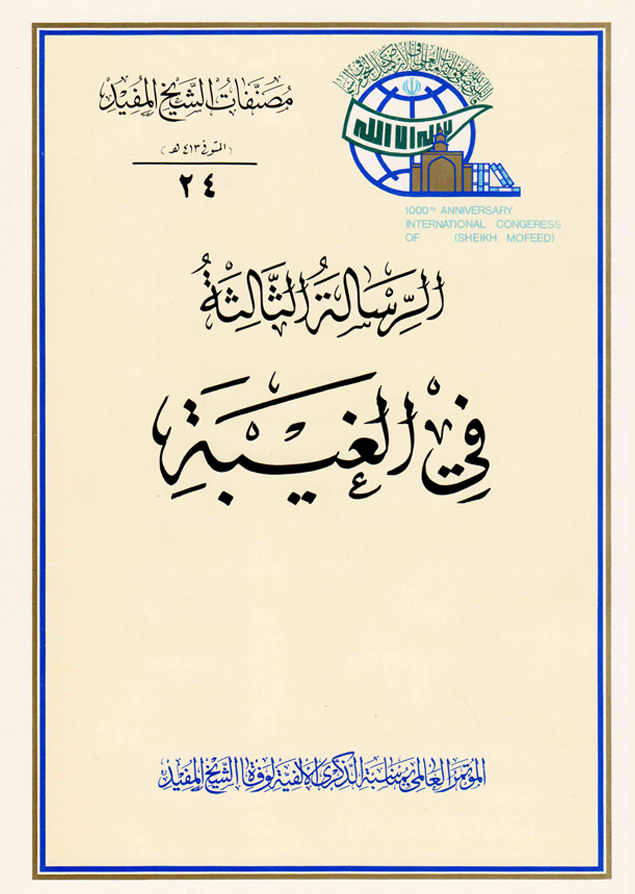 مصنفات الشيخ المفيد
(المتوفى ٤١٣ هـ)
٢٤
لا إله إلا الله
1000th ANNIVERSARY
INTERNATIONAL CONGERESS
OF (SHEIKH MOFEED)
الرِّسَالَةُ الثَّالِثَةُ
فِي الغَيْبَةِ
المؤتمر العالمي بمناسبة الذكرى الألفية لوفاة الشيخ المفيد